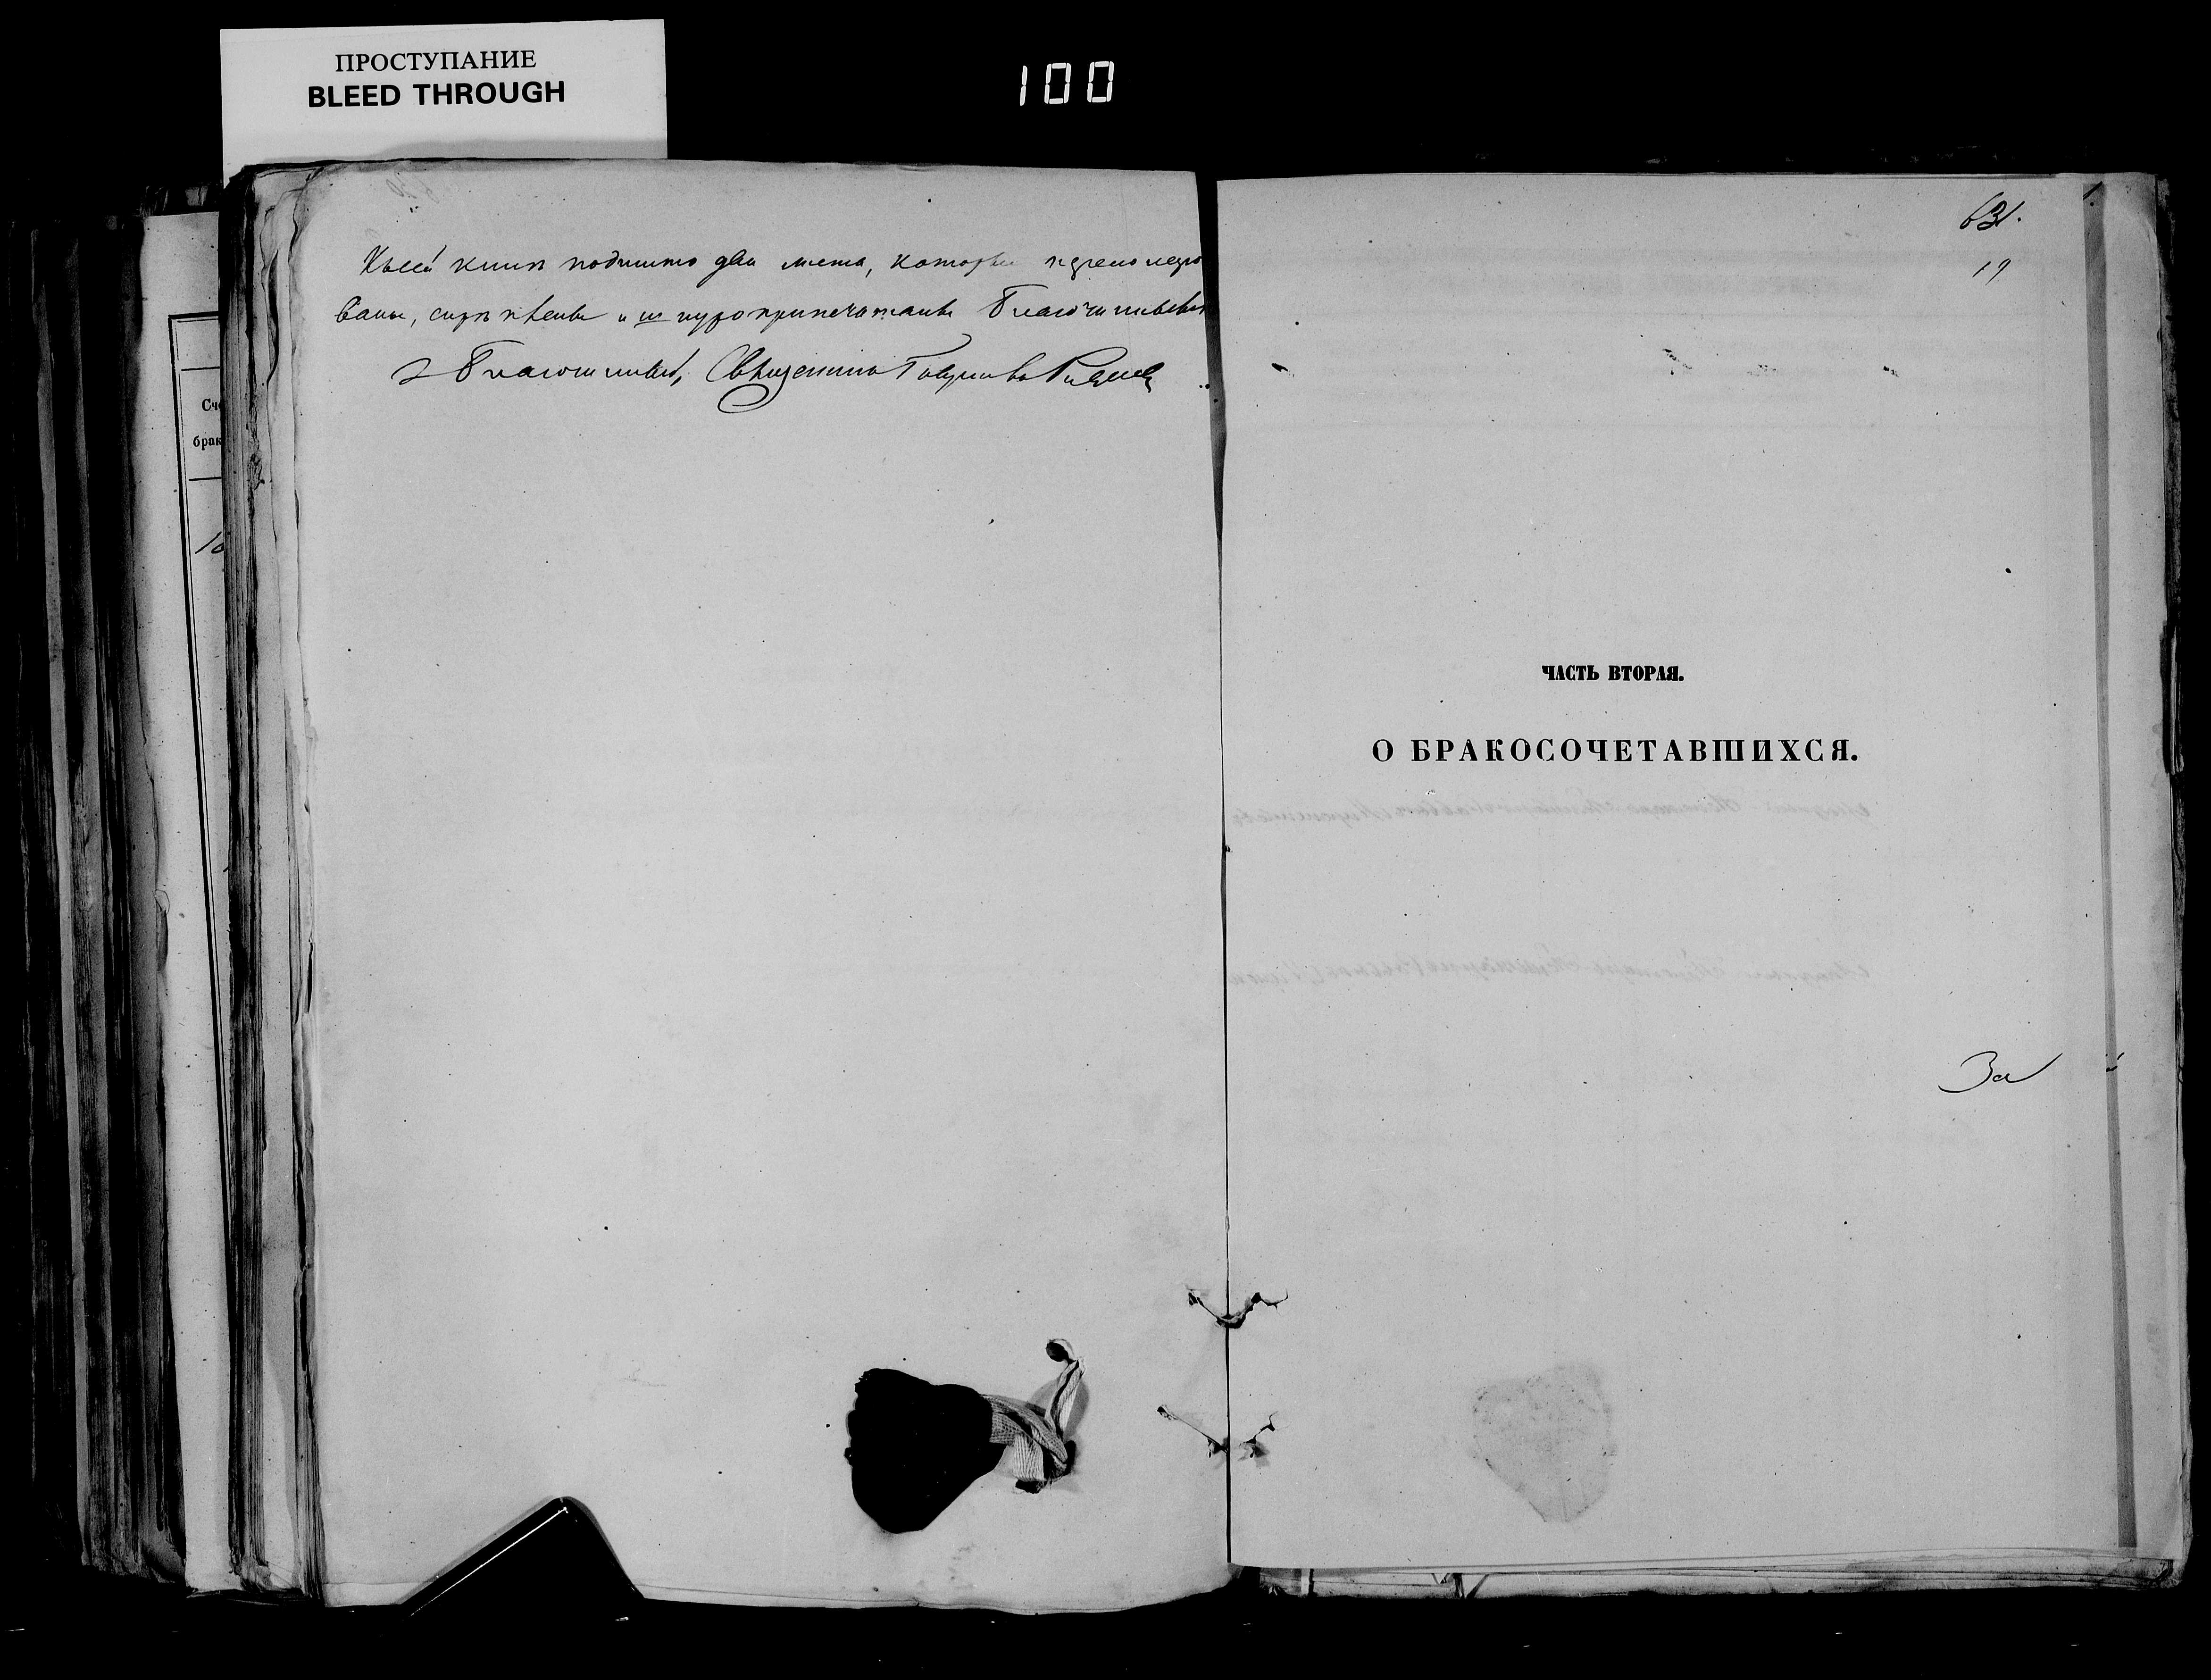 ПРОСТУПАНИЕ
BLEED THROUGH
100
Къ сей книгѣ подшито два листа, которые перенумеро
ваны, скрѣплены и шнуроприпечатаны Благочиннымъ
Благочинный, Священникъ
Сче
брак
631.
19
ЧАСТЬ ВТОРАЯ.
О БРАКОСОЧЕТАВШИХСЯ.
За